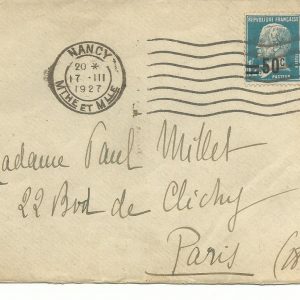 NANCY
20 *
17 -III
1927
MTHE ET MLLE
REPUBLIQUE FRANÇAISE
50c
PASTEUR
Madame Paul Millet
22 Bvd de Clichy
Paris